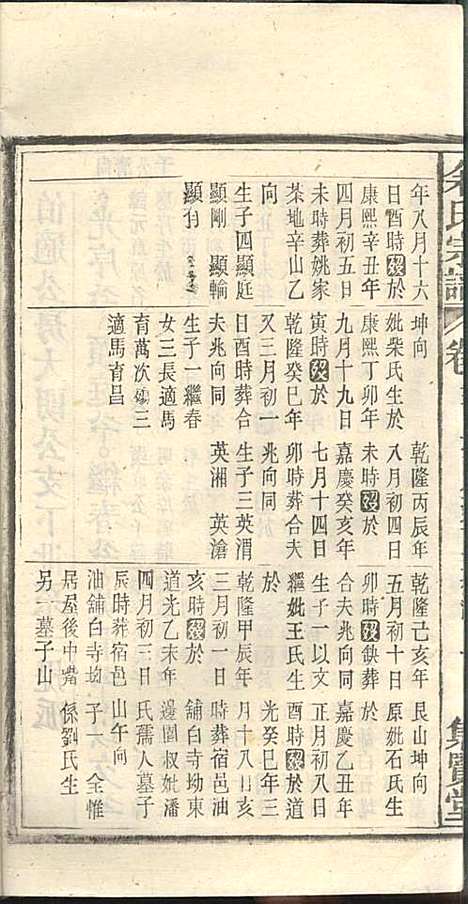 余氏宗譜
卷
集賢堂
年八月十六
日酉時歿於
康熙辛丑年
四月初五日
未時葬姚家
茶地辛山乙
向
生子四顯庭
顯剛 顯輸
顯
坤向
妣柴氏生於
康熙丁卯年
九月十九日
寅時歿於
乾隆癸巳年
又三月初一
日酉時葬合
夫兆向同
生子一繼春
女三長適馬
育萬次殤三
適馬育昌
乾隆丙辰年
八月初四日
未時歿於
嘉慶癸亥年
七月十四日
卯時葬合夫
兆向同
生子三英渭
英湘 英滄
乾隆己亥年
五月初十日
卯時歿缺葬
合夫兆向同
生子一以文
繼妣王氏生
於
乾隆甲辰年
三月初一日
亥時歿於
道光乙未年
四月初三日
辰時葬宿邑
油舖白寺坳
居屋後中嘴
另一墓子山
艮山坤向
原妣石氏生
於
嘉慶乙丑年
正月初八日
酉時歿於道
光癸巳年三
月十八日亥
時葬宿邑油
舖白寺坳東
邊園叔妣潘
氏孺人墓子
山午向
子一 全惟
係劉氏生